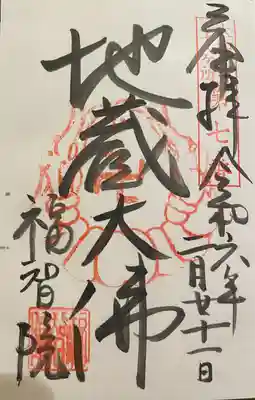 奉拝
令和六年
二月廿十一日
地蔵大佛
福智院